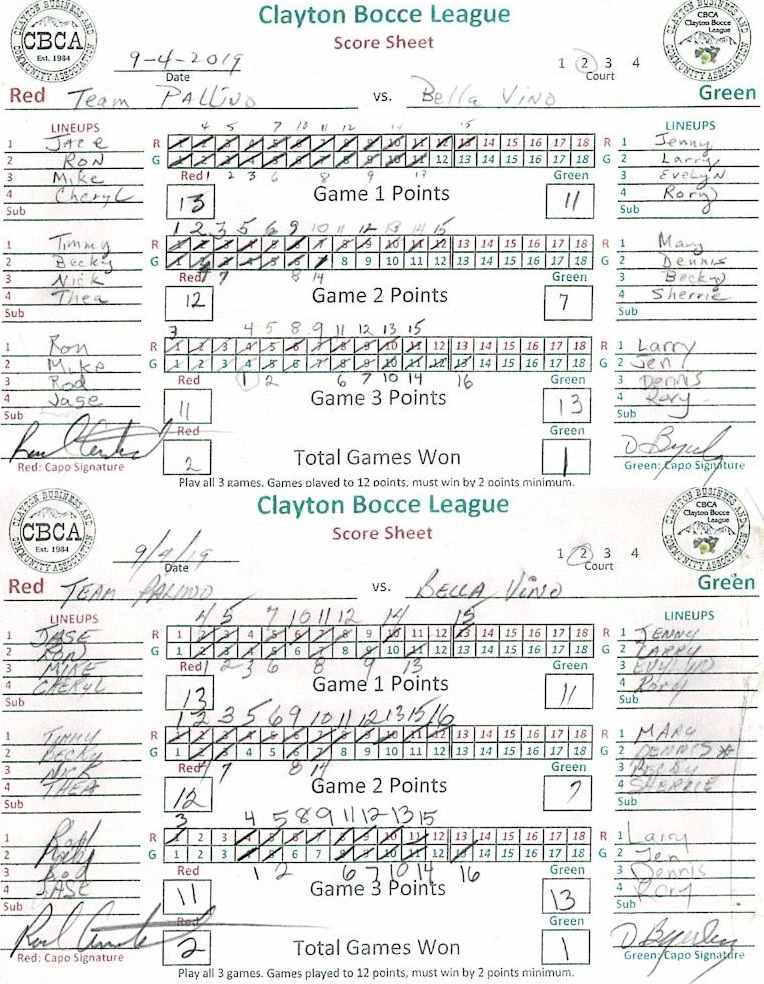 Clayton Bocce League
Score Sheet
CLAYTON BUSINESS AND COMMUNITY ASSOCIATION
CBCA
Est. 1984
CBCA
Clayton Bocce
League
9-4-2019
Date
1 2 3 4
Court
Red Team PALLINO vs. Bella Vino Green
LINEUPS
1 Jace
2 Ron
3 Mike
4 Cheryl
Sub
4 5 7 10 11 12 14 15
R 1 2 3 4 5 6 7 8 9 10 11 12 13 14 15 16 17 18 R
G 1 2 3 4 5 6 7 8 9 10 11 12 13 14 15 16 17 18 G
1 2 3 6 8 9 13
Red Green
13 Game 1 Points 11
LINEUPS
1 Jenny
2 Larry
3 Evelyn
4 Rory
Sub
1 Timmy
2 Becky
3 Nick
4 Thea
Sub
1 2 3 5 6 9 10 11 12 13 14 15
R 1 2 3 4 5 6 7 8 9 10 11 12 13 14 15 16 17 18 R
G 1 2 3 4 5 6 7 8 9 10 11 12 13 14 15 16 17 18 G
4 7 8 14
Red Green
12 Game 2 Points 7
1 Mary
2 Dennis
3 Becky
4 Sherrie
Sub
1 Ron
2 Mike
3 Rod
4 Jase
Sub
3 4 5 8 9 11 12 13 15
R 1 2 3 4 5 6 7 8 9 10 11 12 13 14 15 16 17 18 R
G 1 2 3 4 5 6 7 8 9 10 11 12 13 14 15 16 17 18 G
1 2 6 7 10 14 16
Red Green
11 Game 3 Points 13
1 Larry
2 Jen
3 Dennis
4 Rory
Sub
Red Green
2 Total Games Won 1
Red: Capo Signature
D Byerley
Green: Capo Signature
Play all 3 games. Games played to 12 points, must win by 2 points minimum.
Clayton Bocce League
Score Sheet
CLAYTON BUSINESS AND COMMUNITY ASSOCIATION
CBCA
Est. 1984
CBCA
Clayton Bocce
League
9/4/19
Date
1 2 3 4
Court
Red TEAM PALINO vs. BELLA VINO Green
LINEUPS
1 JASE
2 RON
3 MIKE
4 CHERYL
Sub
4 5 7 10 11 12 14 15
R 1 2 3 4 5 6 7 8 9 10 11 12 13 14 15 16 17 18 R
G 1 2 3 4 5 6 7 8 9 10 11 12 13 14 15 16 17 18 G
1 2 3 6 8 9 13
Red Green
13 Game 1 Points 11
LINEUPS
1 JENNY
2 LARRY
3
4 Rory
Sub
1 TIMMY
2 BECKY
3 NICK
4 THEA
Sub
1 2 3 5 6 9 10 11 12 13 15 16
R 1 2 3 4 5 6 7 8 9 10 11 12 13 14 15 16 17 18 R
G 1 2 3 4 5 6 7 8 9 10 11 12 13 14 15 16 17 18 G
4 7 8 14
Red Green
12 Game 2 Points 7
1 MARY
2 DENNIS *
3 BECKY
4 SHERRIE
Sub
1
2
3 Rod
4 JASE
Sub
3 4 5 8 9 11 12 13 15
R 1 2 3 4 5 6 7 8 9 10 11 12 13 14 15 16 17 18 R
G 1 2 3 4 5 6 7 8 9 10 11 12 13 14 15 16 17 18 G
1 2 6 7 10 14 16
Red Green
11 Game 3 Points 13
1 Larry
2 Jen
3 Dennis
4 Rory
Sub
Red Green
2 Total Games Won 1
Red: Capo Signature
D Byerley
Green: Capo Signature
Play all 3 games. Games played to 12 points, must win by 2 points minimum.